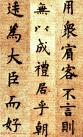 用衆賓客不言則
無以成禮居乎朝
逺為大臣而好